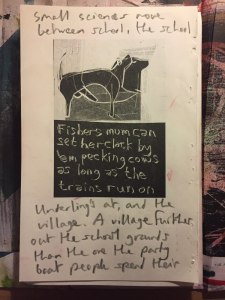 small sciences move
between school, the school
Fishers mum can
set her clock by
'em pecking cows
as long as the
trains run on
Underling's at, and the
village. A village further
out the school grounds
than the one the party
boat people spend their